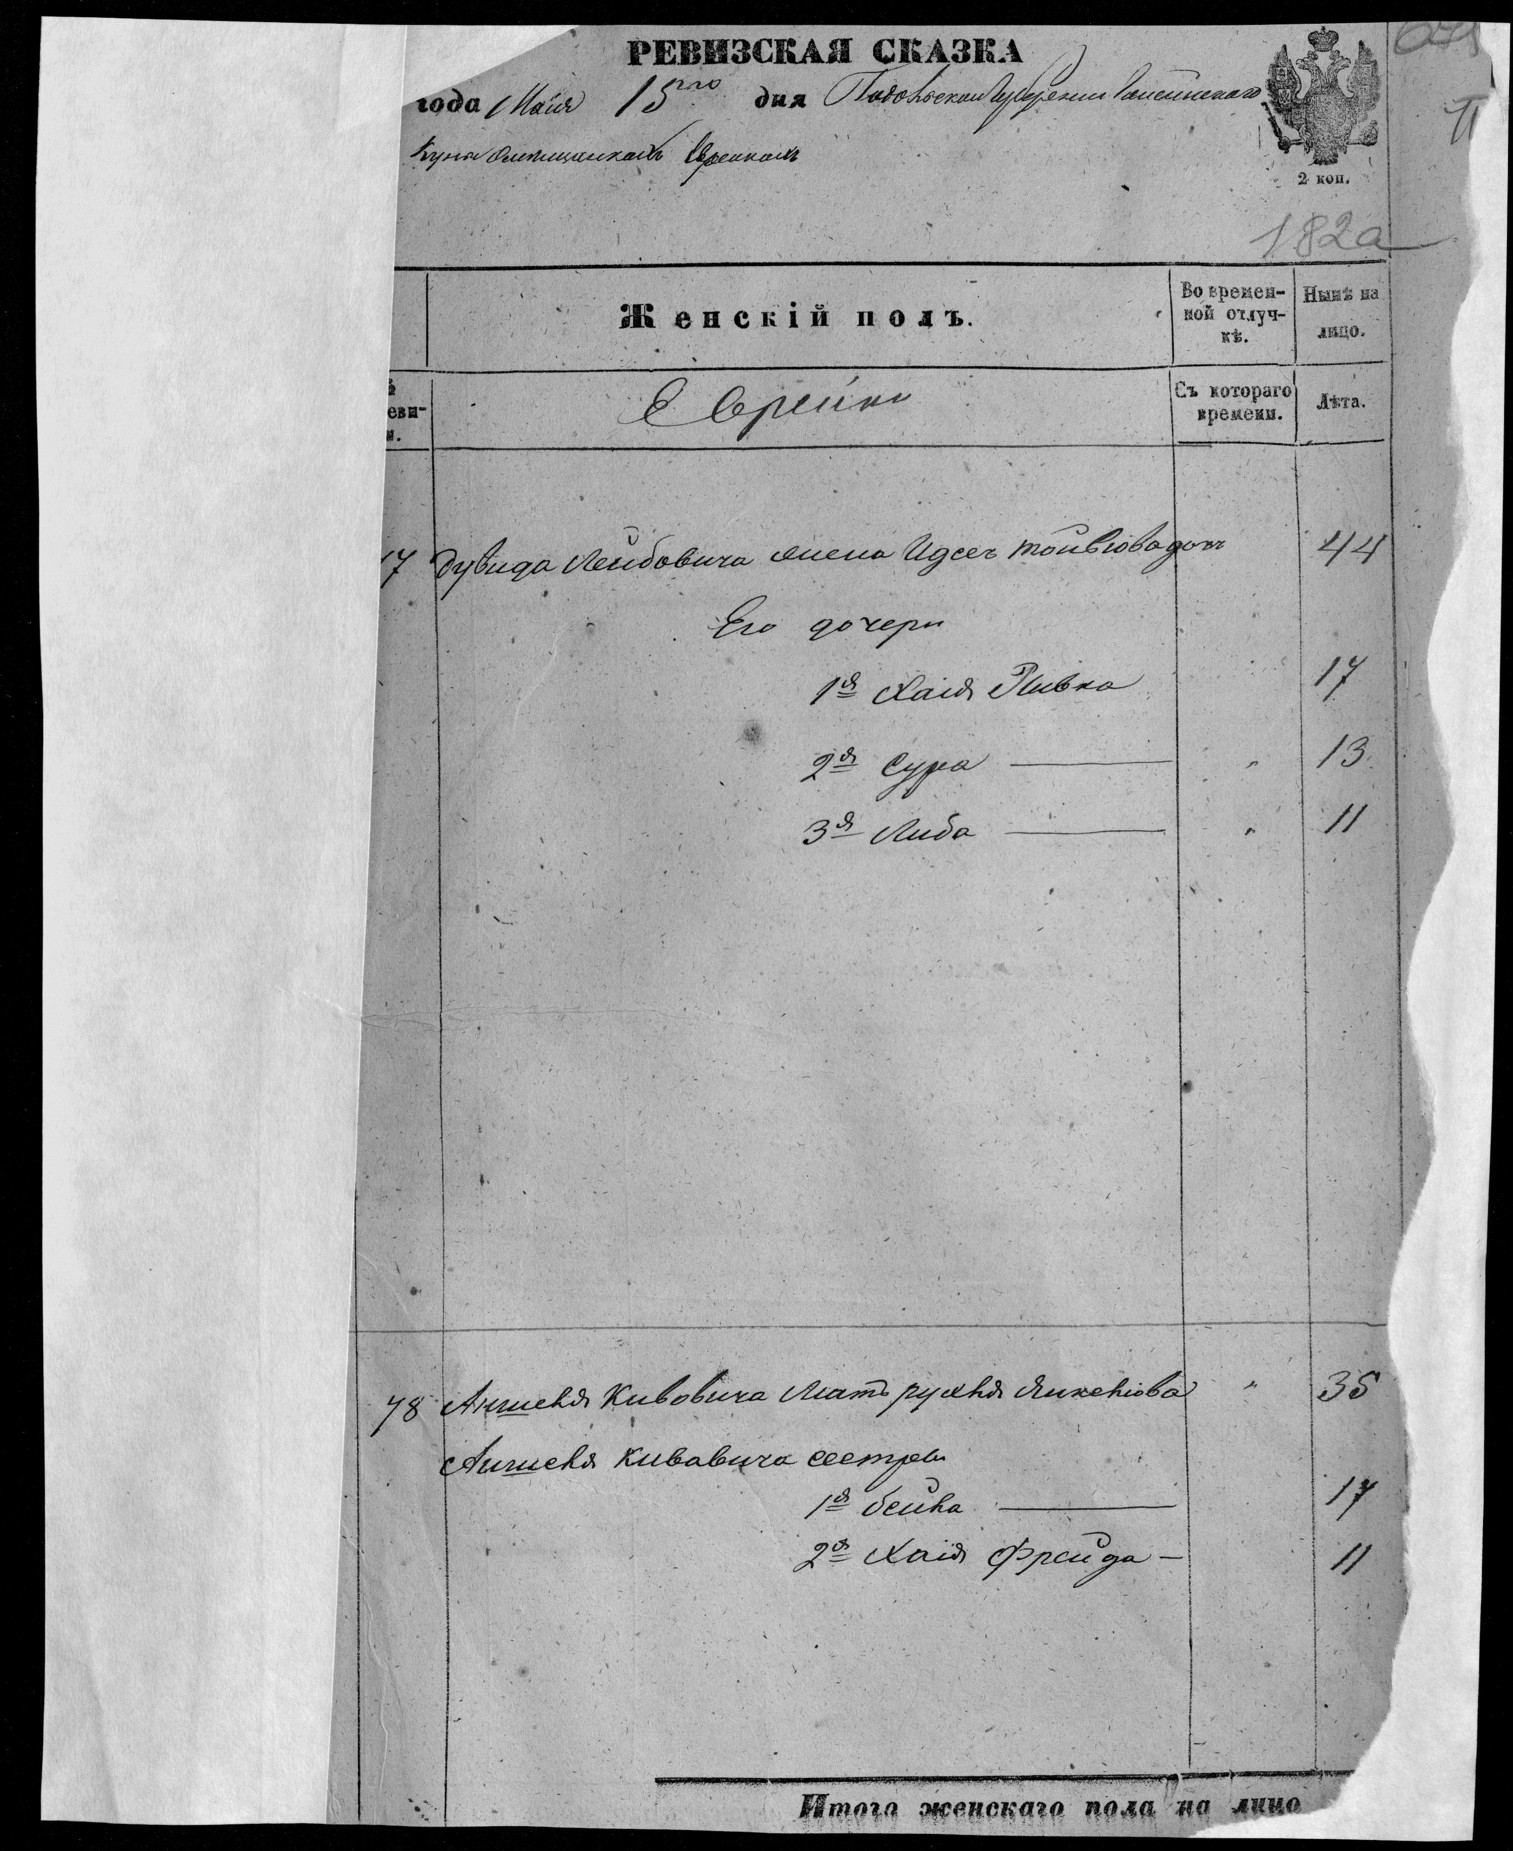 РЕВИЗСКАЯ СКАЗКА
года Маія 15го дня Подольской Губерніи
Евреикахъ
2 коп.
182а
Женскій полъ.
Во времен-
ной отлуч-
кѣ.
Нынѣ на
лицо.
еви-
Еврейки
Съ котораго
времени.
Лѣта.
Дувида Лейбовича жена 44
Его дочери
1я Хаія Ривка 17
2я Сура — " 13
3я Либа — " 11
78 Аншеля Кивовича Мать рухля Янкеліова " 35
Аншеля Кивавича сестры
1я бейла — 17
2я Хаія Фрейда — 11
Итого женскаго пола на лицо